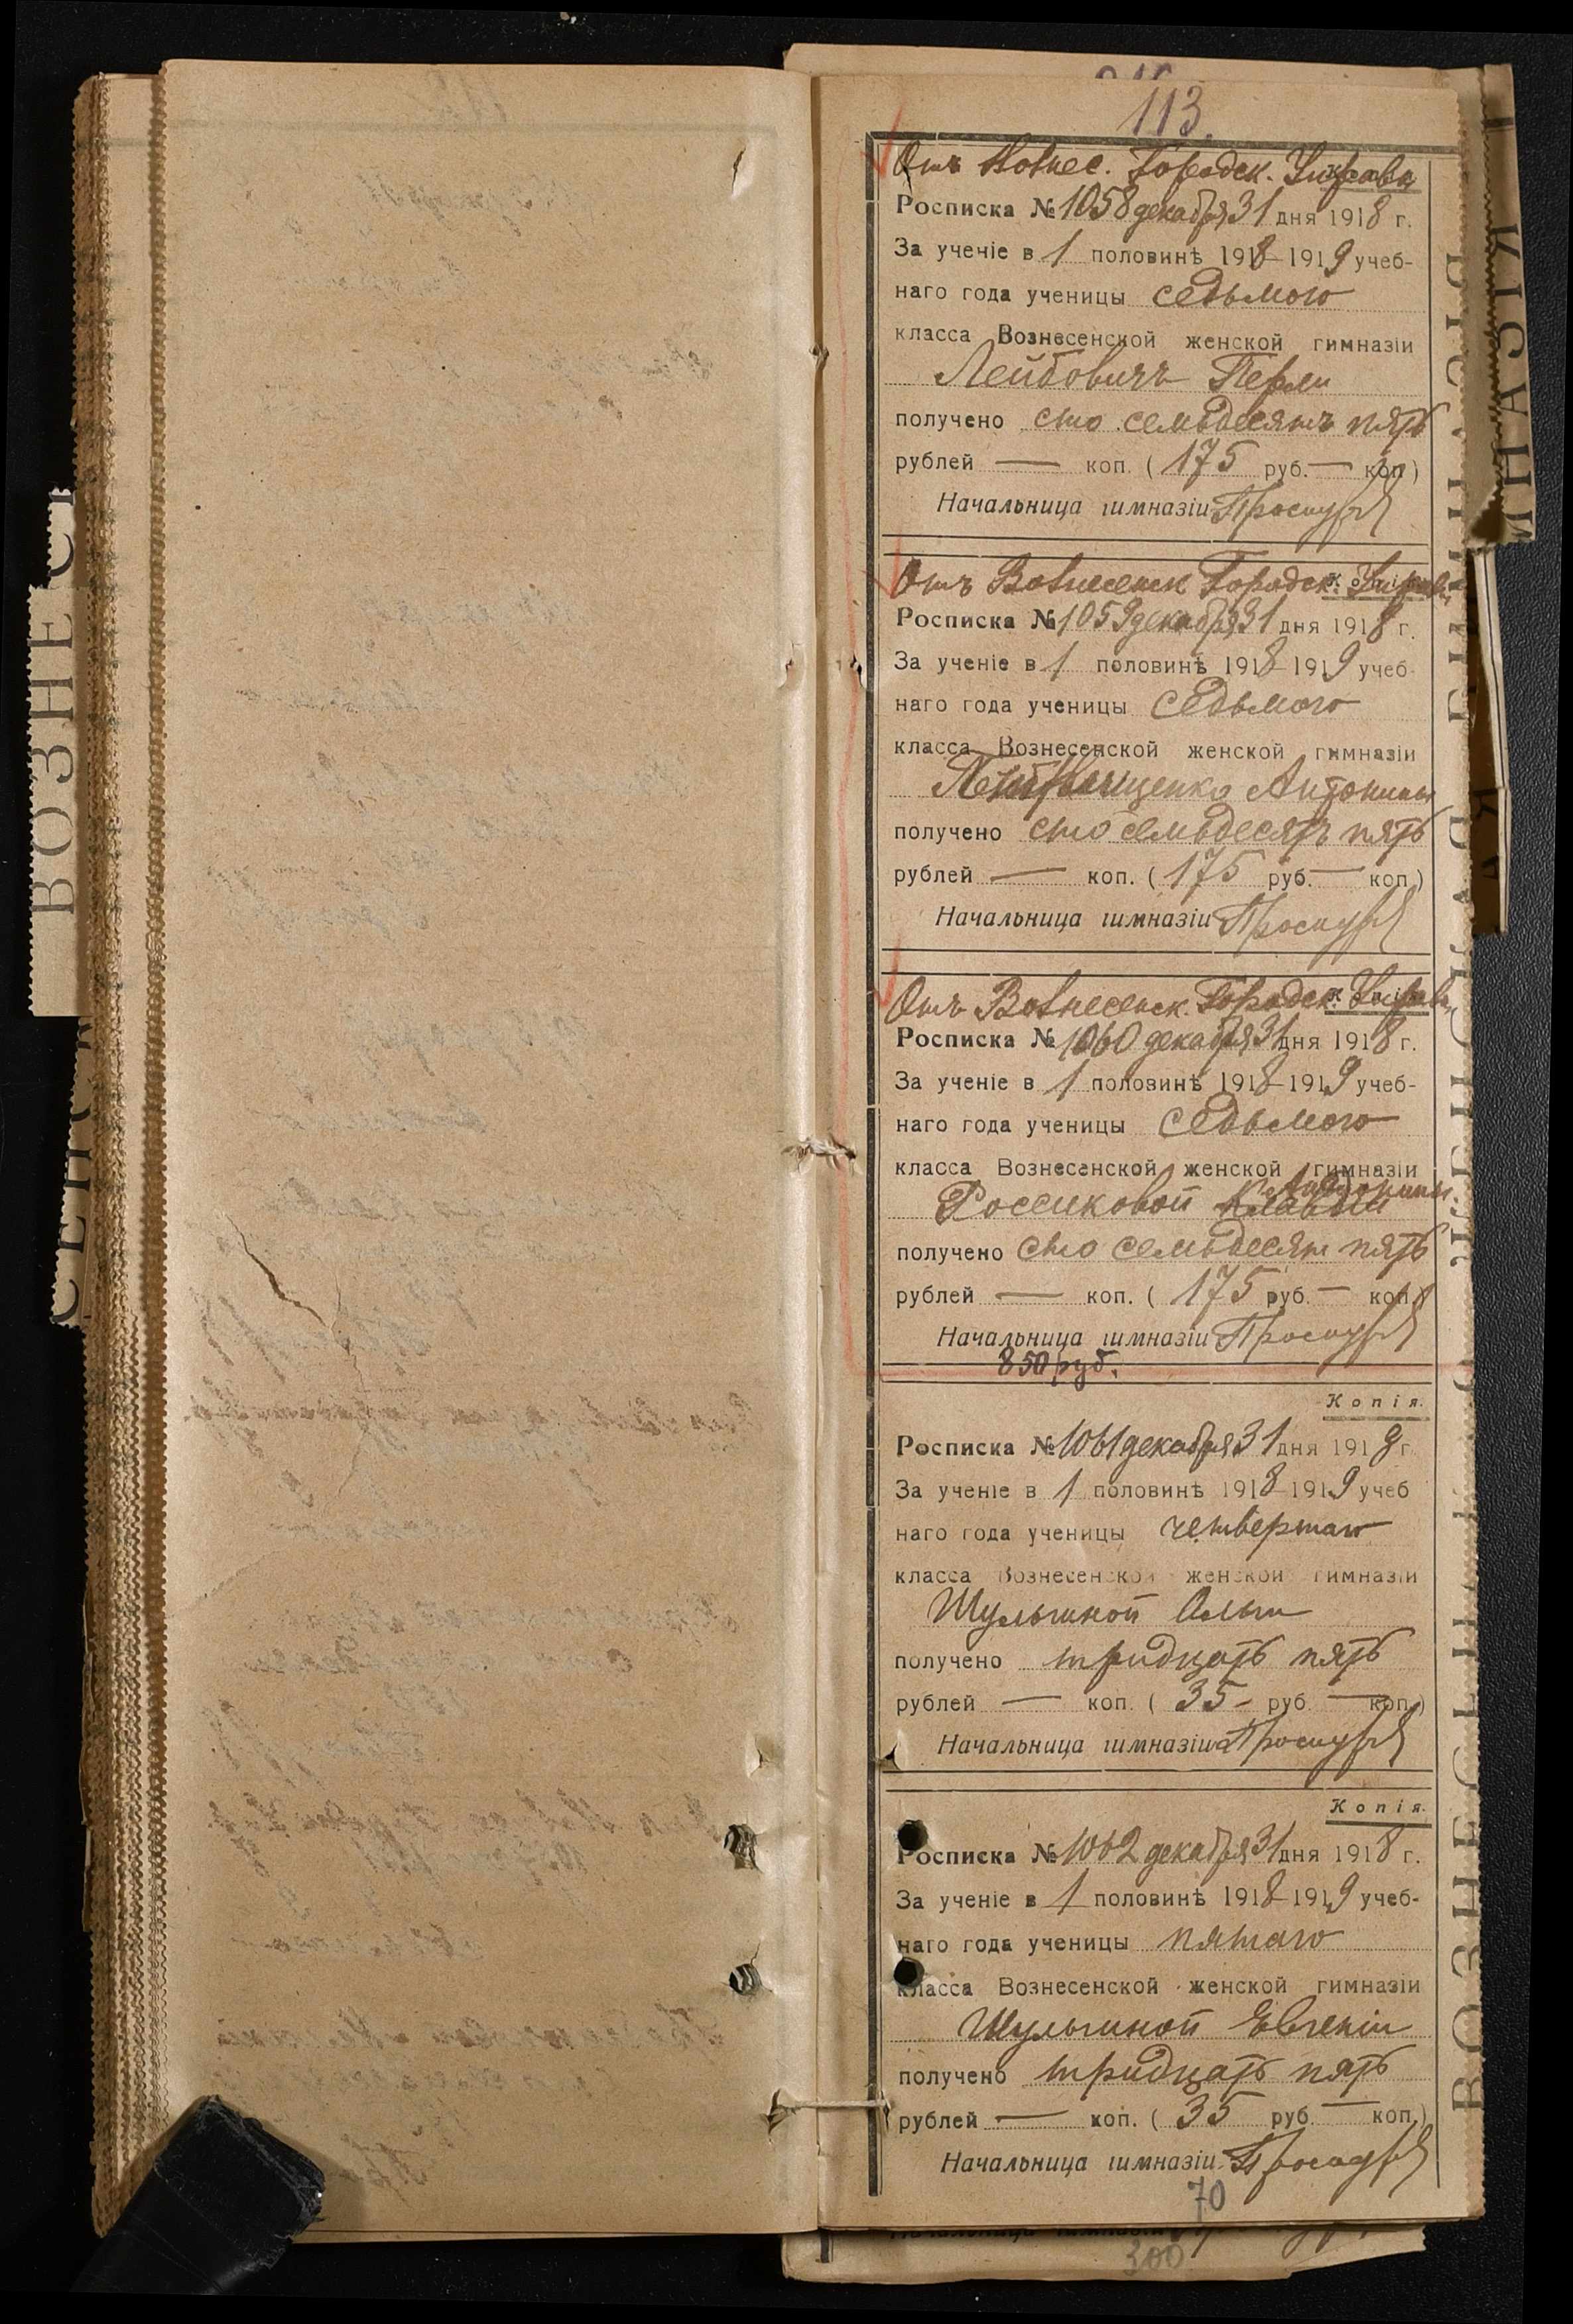 113.
Отъ Вознес. Городск. Управы
Росписка № 1058 декабря 31 дня 1918 г.
За ученіе в 1 половинѣ 1918–1919 учеб-
наго года ученицы седьмого
класса Вознесенской женской гимназіи
Лейбовичъ Перли
получено сто семьдесятъ пять
рублей — коп. ( 175 руб. — коп)
Начальница гимназіи
Отъ Вознесенск Городск. Управы
Росписка № 1059 декабря 31 дня 1918 г.
За ученіе в 1 половинѣ 1918–1919 учеб-
наго года ученицы седьмого
класса Вознесенской женской гимназіи
Антонины
получено сто семьдесятъ пять
рублей — коп. ( 175 руб. — коп)
Начальница гимназіи
Отъ Вознесенск. Городск. Управы
Росписка № 1060 декабря 31 дня 1918 г.
За ученіе в 1 половинѣ 1918–1919 учеб-
наго года ученицы седьмого
класса Вознесенской женской гимназіи
Антонины
Россиковой Клавдіи
получено сто семьдесят пять
рублей — коп. ( 175 руб. — коп.)
Начальница гимназіи
850 руб.
Копія.
Росписка № 1061 декабря 31 дня 1918 г
За ученіе в 1 половинѣ 1918–1919 учеб
наго года ученицы четвертаго
класса Вознесенской женской гимназіи
Шульгиной Ольги
получено тридцать пять
рублей — коп. ( 35 – руб — коп.)
Начальница гимназіи
Копія.
Росписка № 1062 декабря 31 дня 1918 г.
За ученіе в 1 половинѣ 1918–1919 учеб-
наго года ученицы пятаго
класса Вознесенской женской гимназіи
Шульгиной Евгеніи
получено тридцать пять
рублей — коп. ( 35 руб. — коп.)
Начальница гимназіи
70
300
ВОЗНЕС